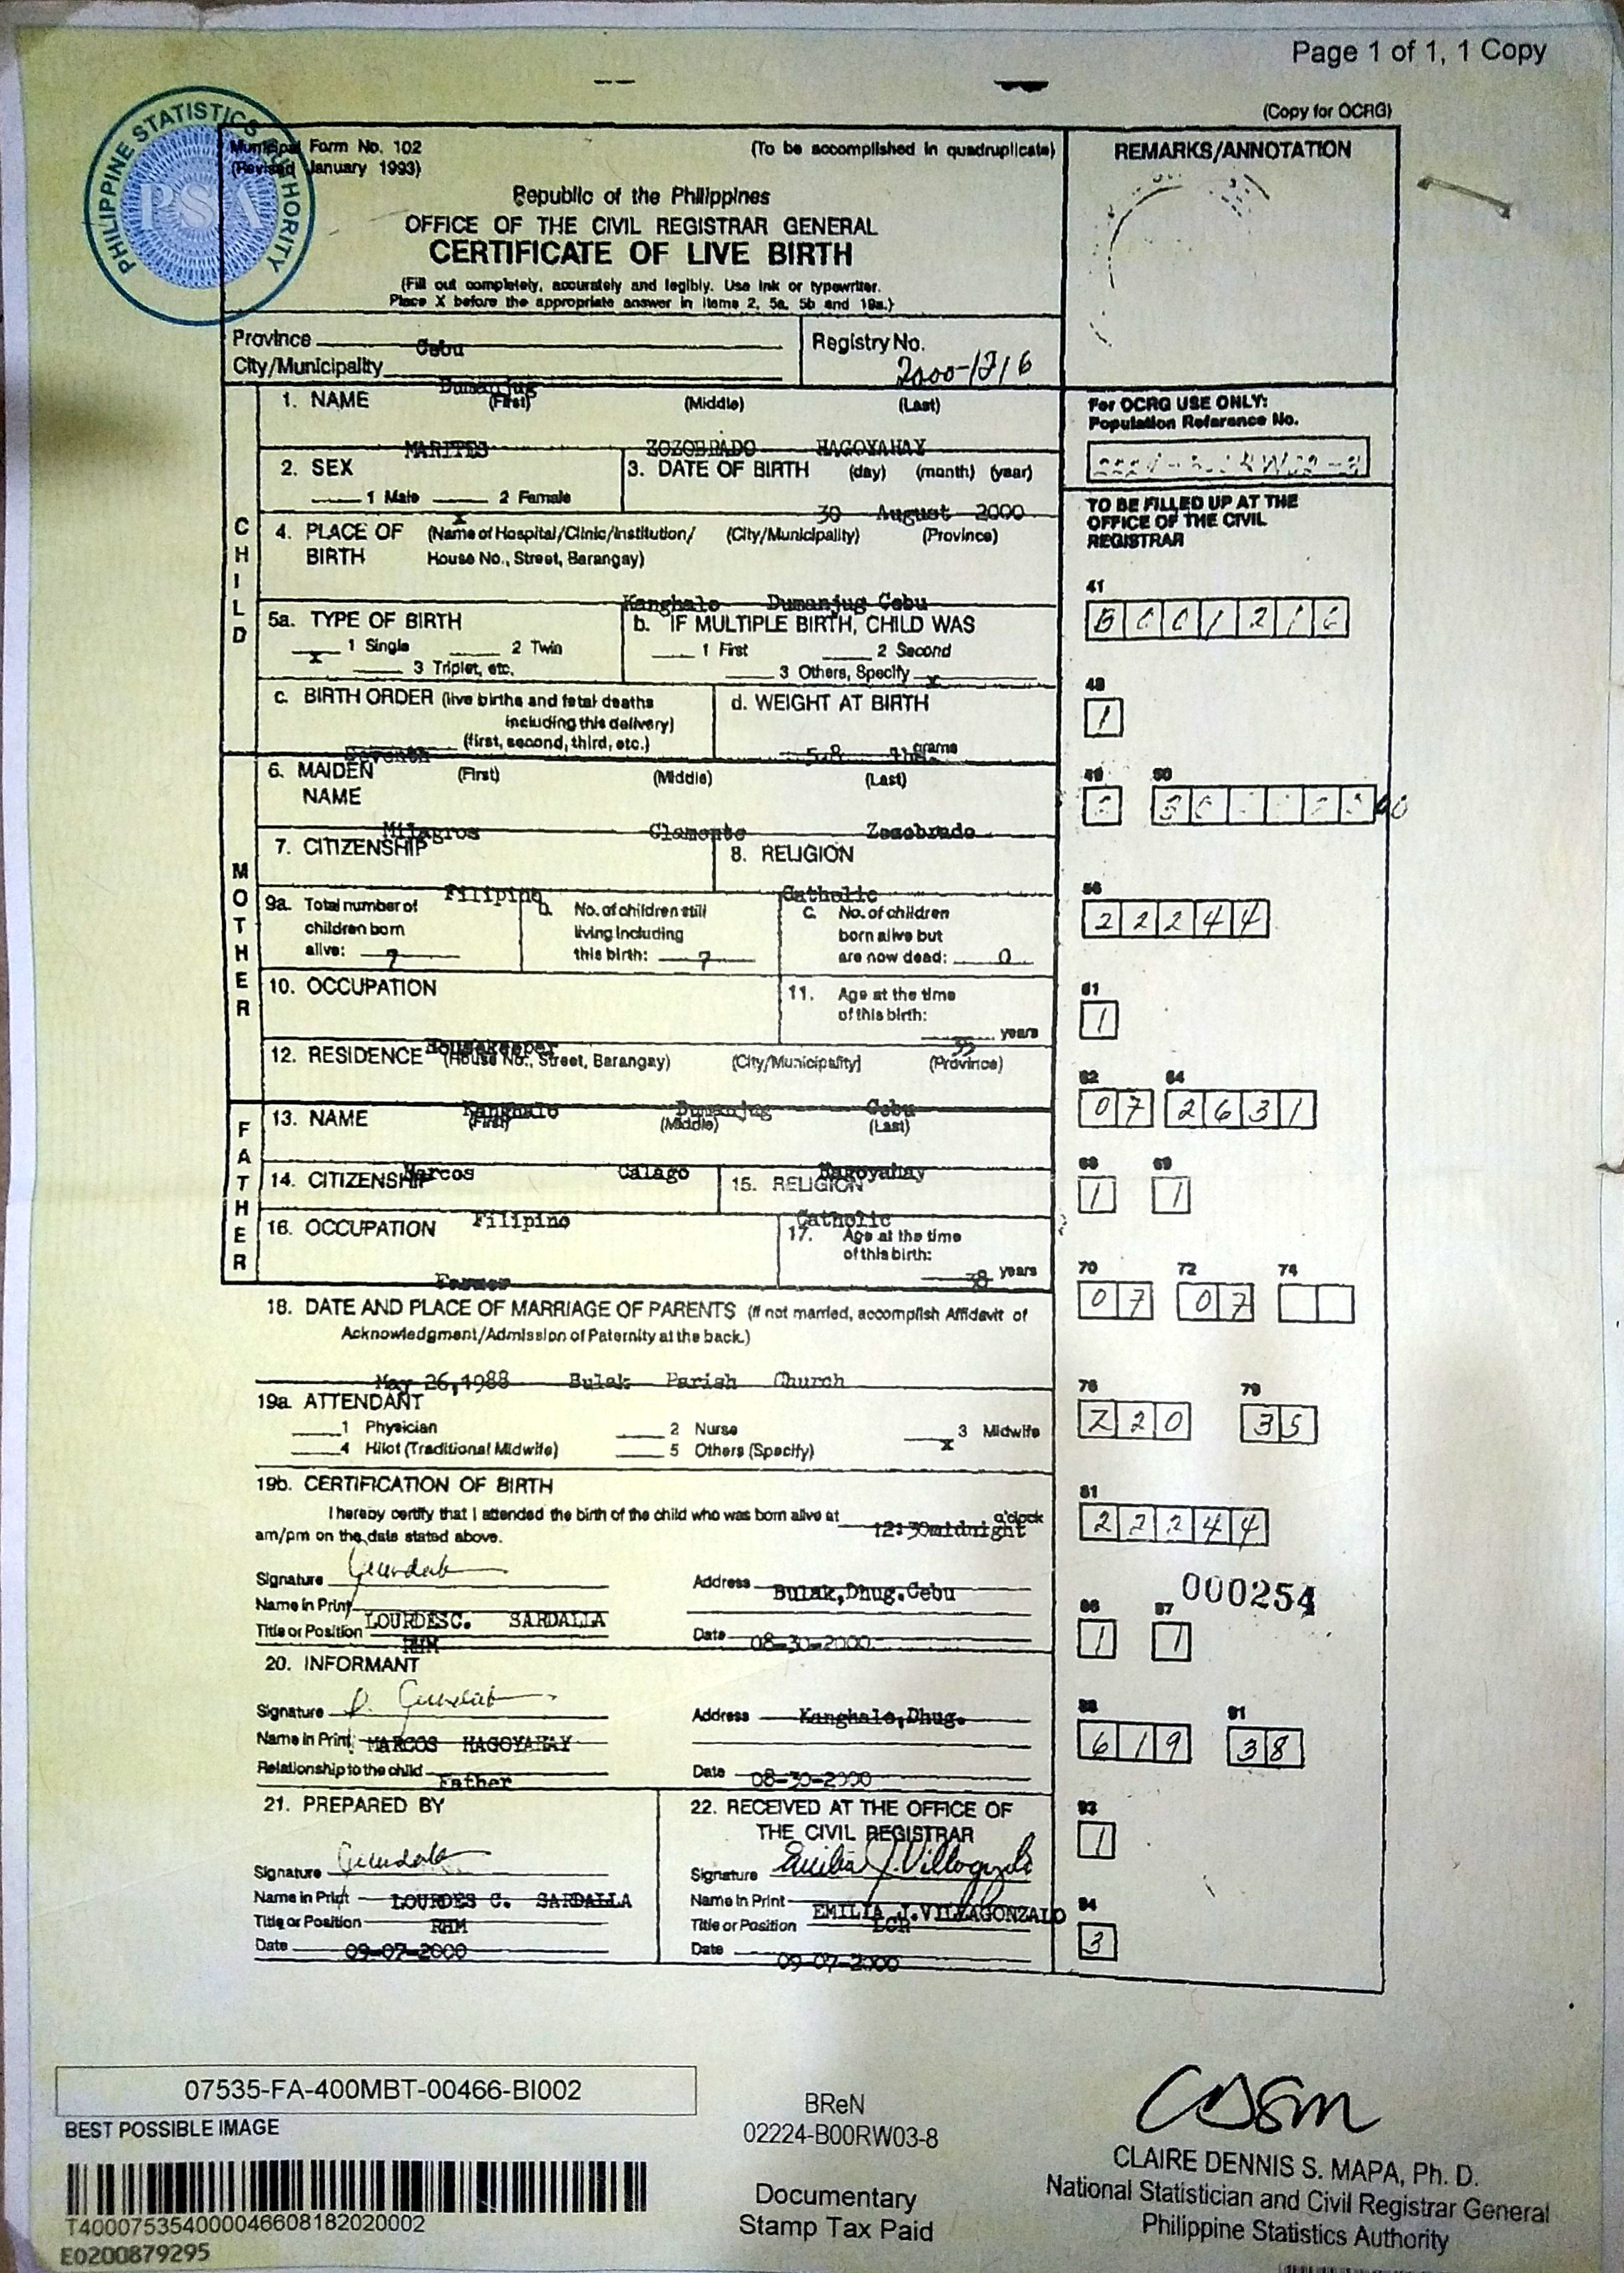 Page 1 of 1, 1 Copy
(Copy for OCRG)
PHILIPPINE STATISTICS AUTHORITY
PSA
Municipal Form No. 102
(Revised January 1993)
(To be accomplished in quadruplicate)
REMARKS/ANNOTATION
Republic of the Philippines
OFFICE OF THE CIVIL REGISTRAR GENERAL
CERTIFICATE OF LIVE BIRTH
(Fill out completely, accurately and legibly. Use ink or typewriter.
Place X before the appropriate answer in items 2, 5a, 5b and 19a.)
Province Cebu
Registry No. 2000-1216
City/Municipality Dumanjug
CHILD
1. NAME (First) (Middle) (Last)
MARITES ZOZOBRADO HAGOYAHAY
For OCRG USE ONLY:
Population Reference No.
2. SEX
1 Male x 2 Female
3. DATE OF BIRTH (day) (month) (year)
30 August 2000
TO BE FILLED UP AT THE
OFFICE OF THE CIVIL
REGISTRAR
4. PLACE OF BIRTH (Name of Hospital/Clinic/Institution/ House No., Street, Barangay) (City/Municipality) (Province)
Kanghalo Dumanjug Cebu
41
B001216
5a. TYPE OF BIRTH
x 1 Single 2 Twin
3 Triplet, etc.
b. IF MULTIPLE BIRTH, CHILD WAS
1 First 2 Second
3 Others, Specify x
c. BIRTH ORDER (live births and fetal deaths
including this delivery)
(first, second, third, etc.)
Seventh
d. WEIGHT AT BIRTH
5.8 grams
48
1
MOTHER
6. MAIDEN NAME (First) (Middle) (Last)
Milagros Clamonte Zozobrado
49 50
7. CITIZENSHIP
Filipino
8. RELIGION
Catholic
56
22244
9a. Total number of
children born
alive: 7
b. No. of children still
living including
this birth: 7
c. No. of children
born alive but
are now dead: 0
10. OCCUPATION
Housekeeper
11. Age at the time
of this birth:
35 years
61
1
12. RESIDENCE (House No., Street, Barangay) (City/Municipality) (Province)
Kanghalo Dumanjug Cebu
62 64
07 2631
FATHER
13. NAME (First) (Middle) (Last)
Marcos Calago Hagoyahay
68 69
1 1
14. CITIZENSHIP
Filipino
15. RELIGION
Catholic
16. OCCUPATION
Farmer
17. Age at the time
of this birth:
38 years
70 72 74
07 07
18. DATE AND PLACE OF MARRIAGE OF PARENTS (If not married, accomplish Affidavit of
Acknowledgment/Admission of Paternity at the back.)
May 26,1988 Bulak Parish Church
19a. ATTENDANT
1 Physician 2 Nurse x 3 Midwife
4 Hilot (Traditional Midwife) 5 Others (Specify)
76 79
220 35
19b. CERTIFICATION OF BIRTH
I hereby certify that I attended the birth of the child who was born alive at 12:30midnight o'clock
am/pm on the date stated above.
81
22244
000254
Signature
Address Bulak,Dhug.Cebu
Name in Print LOURDESC. SARDALLA
Title or Position RHM
Date 08-30-2000
86 87
1 1
20. INFORMANT
Signature
Address Kanghalo,Dhug.
Name in Print MARCOS HAGOYAHAY
Relationship to the child Father
Date 08-30-2000
88 91
619 38
21. PREPARED BY
Signature
Name in Print LOURDES C. SARDALLA
Title or Position RHM
Date 09-07-2000
22. RECEIVED AT THE OFFICE OF
THE CIVIL REGISTRAR
Signature Emilia J. Villagonzalo
Name in Print EMILIA J.VILLAGONZALO
Title or Position LCR
Date 09-07-2000
93
1
94
3
07535-FA-400MBT-00466-BI002
BEST POSSIBLE IMAGE
T400075354000046608182020002
E0200879295
BReN
02224-B00RW03-8
Documentary
Stamp Tax Paid
CLAIRE DENNIS S. MAPA, Ph. D.
National Statistician and Civil Registrar General
Philippine Statistics Authority